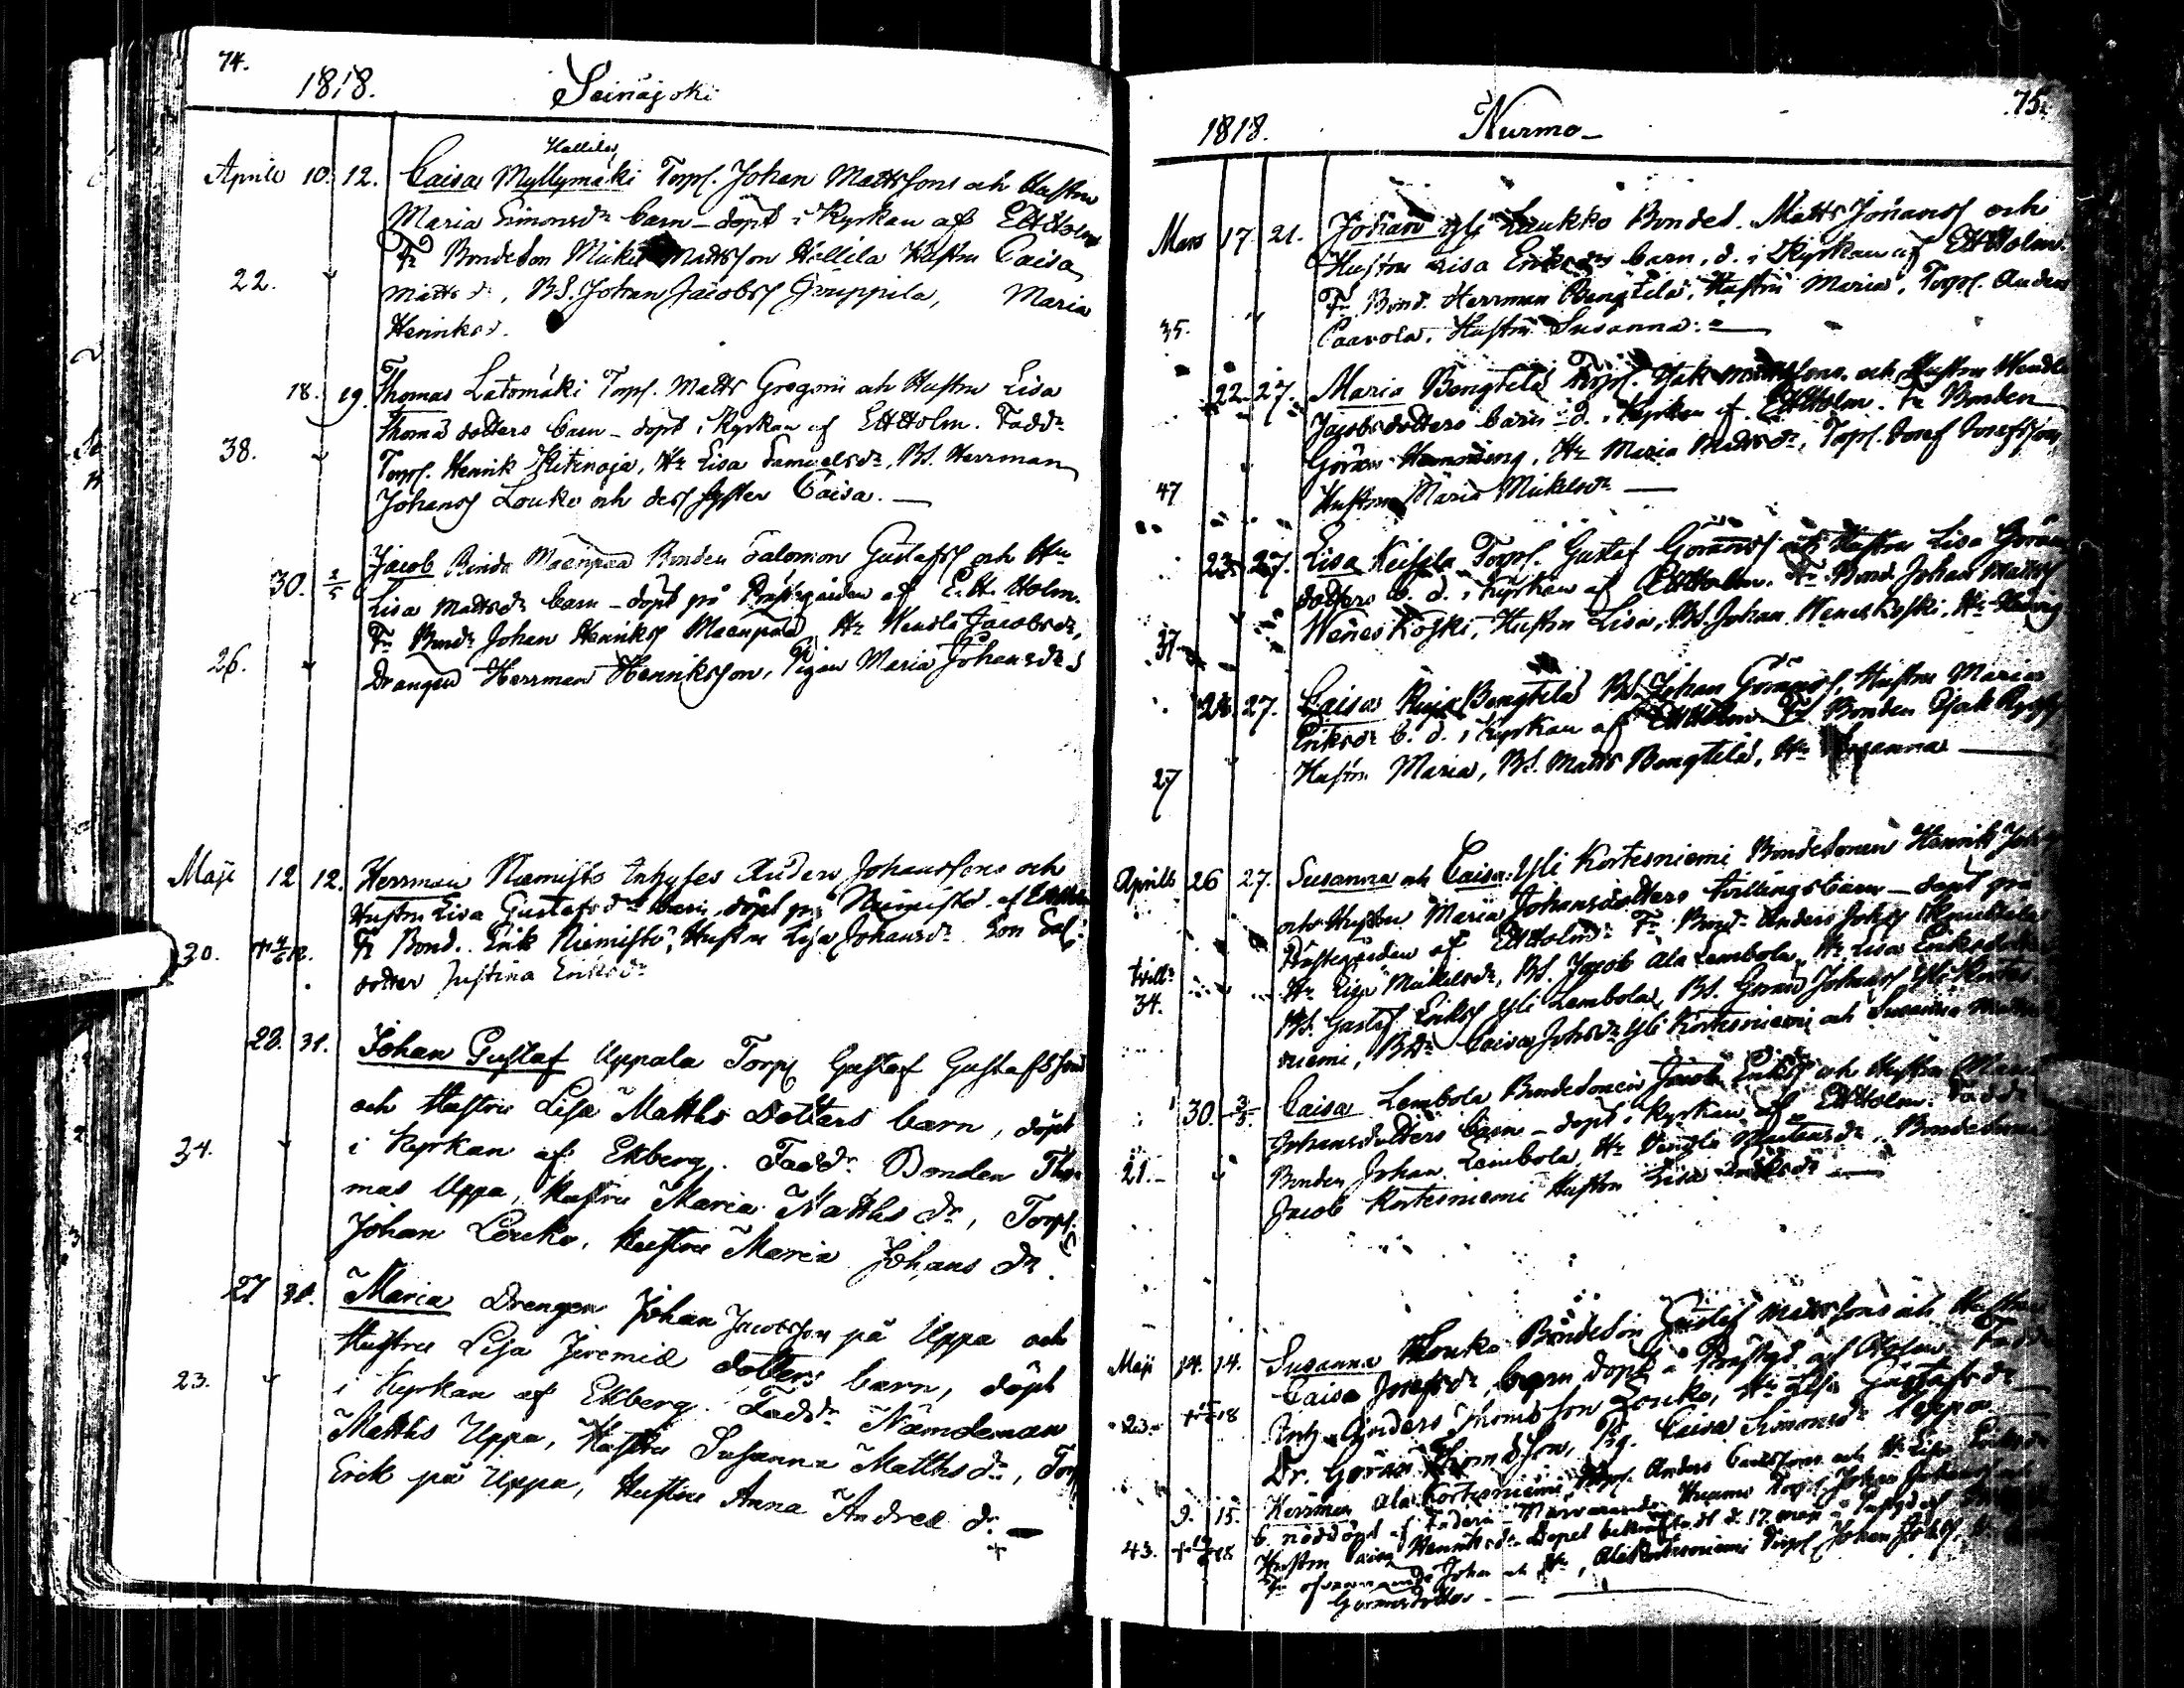 74.
1818. Seinäjoki
Hallila
Aprilis 10. 12. Caisa Myllymäki Torp. Johan Mattssons och Hustru
Maria Simonsdr barn - döpt i Kyrkan af EHHolm
Fr Bondeson Mickel Mattsson Hallila Hustru Caisa
22. Mattsdr, BS. Johan Jacobss Gruppila, Maria
Henriksd.
18. 19. Thomas Latomäki Torp. Matts Gregorii och Hustru Lisa
Thomædotters barn - döpt i Kyrkan af EHHolm. Faddr
38. Torp. Henrik Ritinoja, Hr Lisa Samuelsdr, BS. Herrman
Johanss Louko och dess syster Caisa. —
30. 2/5 Jacob Rinda Mäenpää Bonden Salomon Gustafss och Hu
Lisa Mattsdr barn - döpt på Prästgården af E.H. Holm.
Fr Bond. Johan Henrikss Mäenpää Hr Hendla Jacobsdr,
26. Drängen Herrman Henriksson, Pigan Maria Johansdr
Maji 12 12. Herrman Niemistö Inhyses Anders Johanssons och
Hustru Lisa Gustafsdr barn, döpt på Niemistö af
30. Fr Bond. Erik Niemistö, Hustru Lisa Johansdr Son
dotter Justina Eriksdr
28. 31. Johan Gustaf Uppala Torp Gustaf Gustafsson
och Hustru Lisa Matths Dotters barn, döpt
34. i Kyrkan af Ekberg. Faddr Bonden Tho-
mas Uppa, Hustru Maria Matths dr, Torp.
Johan Louko, Hustru Maria Johans dr.
27 31. Maria Drengen Johan Jacobsson på Uppa och
Hustru Lisa Jeremiæ dotters barn, döpt
23. i Kyrkan af Ekberg. Faddr Nämdeman
Matths Uppa, Hustru Susanna Matths dr, Torp
Erik på Uppa, Hustru Anna Andreæ dr. —
75.
1818. Nurmo -
Mars 17. 21. Johan Yli Laukko Bondes. Matts Johanss och
Hustru Lisa Eriksdrs barn, d. i Kyrkan af EHHolm.
Fr Bond. Herrman Bengtilä, Hustru Maria, Torp. Anders
35. Paavola, Hustru Susanna. —
22. 27. Maria Bengtilä Torp. Isak Mattssons och Hustru Hendla
Jacobsdotters barn - d. i Kyrkan af EHHolm. Fr Bonden
Göran, Hr Maria Mattsdr, Torp. Josef Josefsson,
47 Hustru Maria Mickelsdr —
23. 27. Lisa Keisala Torp. Gustaf Göranss och Hustru Lisa Görans
dotters b. d. i Kyrkan af EHHolm. Fr Bond. Johan Mattss
37. Wenes Koski, Hustru Lisa, BS. Johan Wenes Koski, Hr Hedvig
24. 27. Caisa Ruja Bengtilä BS. Johan Göranss, Hustru Maria
Eriksdr b. d. i Kyrkan af EHHolm Fr Bonden Isak
27 Hustru Maria, BS. Matts Bengtilä, Hr Susanna —
Aprilis 26 27. Susanna och Caisa Yli Kortesniemi Bondesonen Henrik
och Hustru Maria Johansdotters tvillingsbarn - döpt på
Prästegården af EHHolm. Fr Bond. Anders Johss
Tvill. Hr Lisa Mickelsdr, BS. Jacob Ala Lembola, Hr Lisa Eriksdotter
34. BS. Gustaf Erikss Yli Lembola, BS. Göran Johanss Yli Kortes-
niemi, BDr Caisa Johsdr Yli Kortesniemi och Susanna
30. 3/5. Caisa Lembola Bondesonen Jacob Erikss och Hustru Maria
Johansdotters barn - döpt i Kyrkan af EHHolm. Faddr
21. Bonden Johan Lembola Hr Hendla, Bondesonen
Jacob Kortesniemi Hustru Lisa —
Maji 14. 14. Susanna Louko Bondeson Gustaf Mattssons och Hustru
Caisa Josefsdr barn döpt å Prästgd. af Holm. Fadd
23. Inh. Anders Thomsson Louko, Hr Lisa Gustafsdr
Dr. Göran Thomsson, Pig. Caisa Simonsdr Uppa
9. 15. Herrman Ala Kortesniemi Torp. Anders och Hr Lisa Eriksdr
b. nöddöpt af Fadern - Närvarande Torp. Johan Johanss och
43. Hustru Caisa Henriksdr. Dopet bekräftadt d. 17. maji
Fr ofvannämnde Johan och Hr, Alakortesniemi Torp. Johan Johss,
Göransdotter —